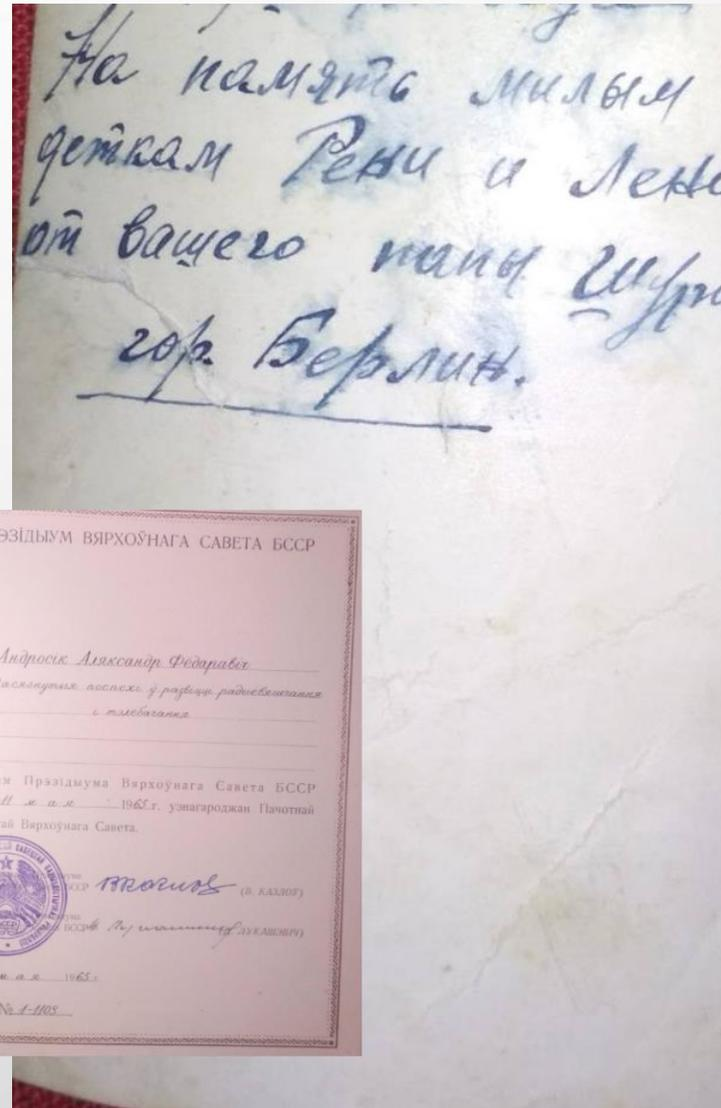 На память милым
деткам Рени и Лене
от вашего папы Шур
гор. Берлин.
ЭЗІДЫУМ ВЯРХОЎНАГА САВЕТА БССР
Андросік Аляксандр Фёдаравіч
дасягнутыя поспехі ў развіцці радыёвяшчання
і тэлебачання
м Прэзідыума Вярхоўнага Савета БССР
11 мая 1965 г. узнагароджан Пачотнай
ай Вярхоўнага Савета.
БССР (В. КАЗЛОЎ)
БССР ЛУКАШЭВІЧ)
мая 1965 г.
№ 1-1109